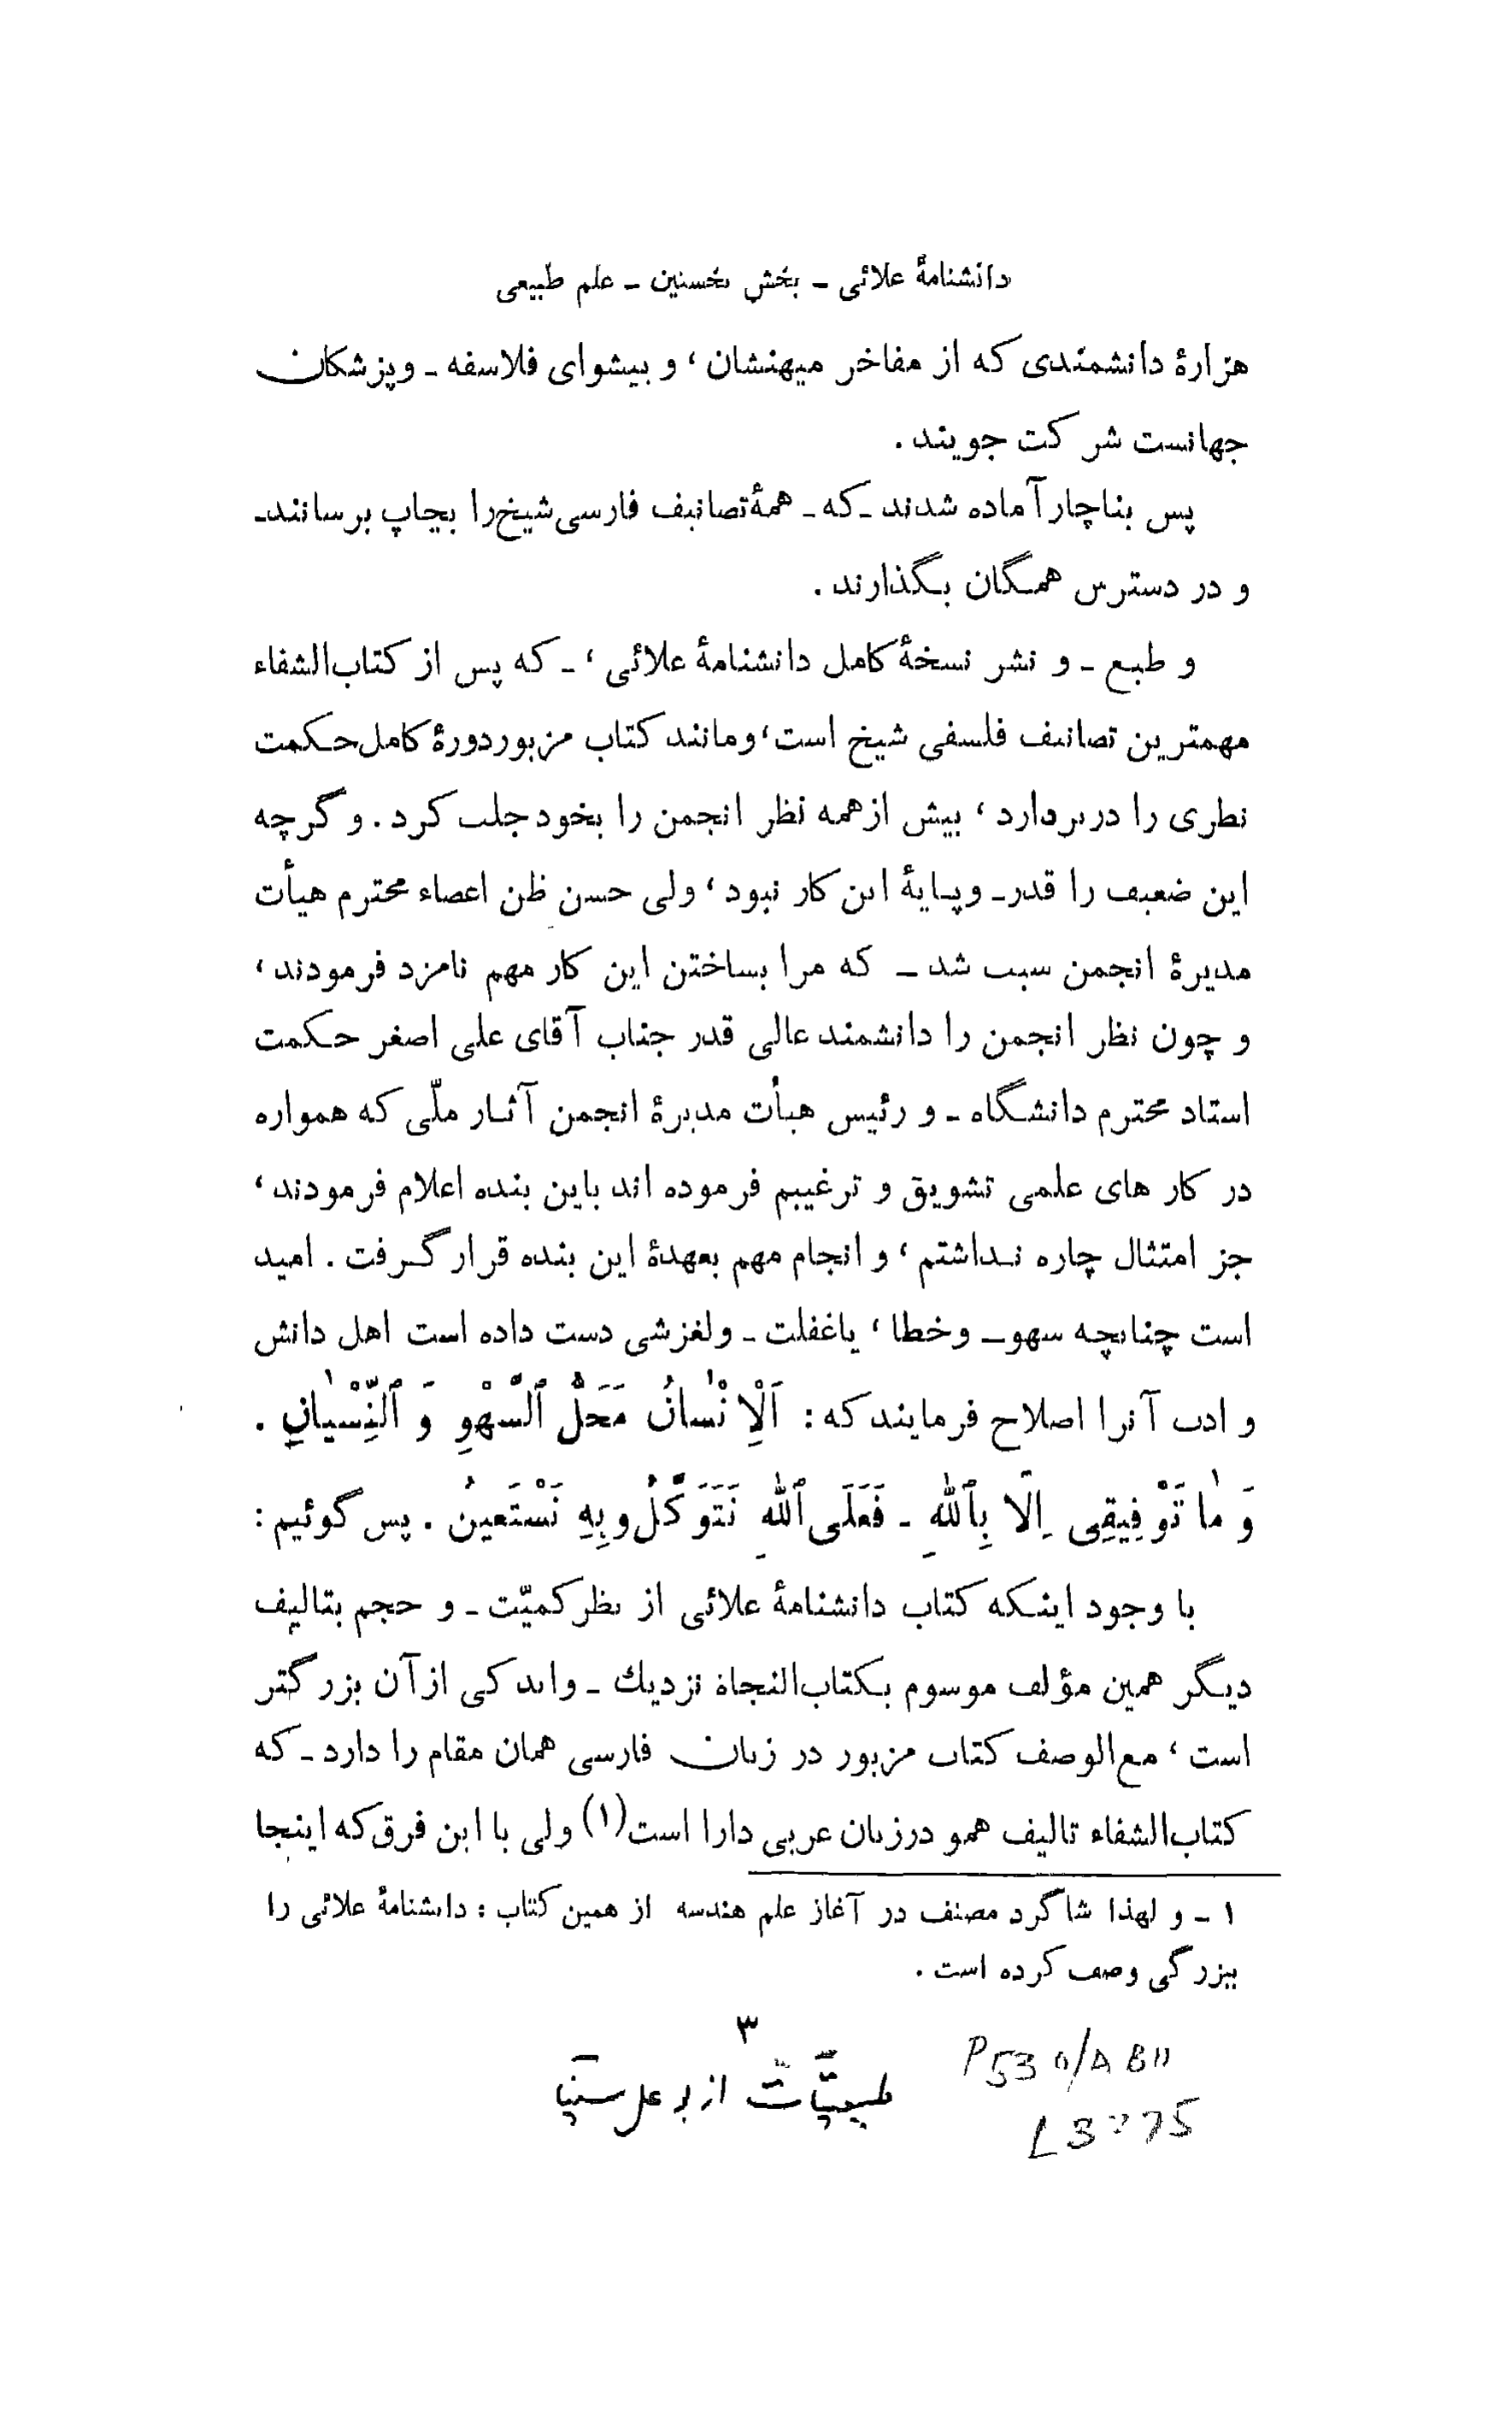 دانشنامهٔ علائی ـ بخش نخستین ـ علم طبیعی
هزارهٔ دانشمندی که از مفاخر میهنشان ، و پیشوای فلاسفه ـ وپزشکان
جهانست شرکت جویند .
پس بناچار آماده شدند ـ که ـ همهٔ تصانیف فارسی شیخ را بچاپ برسانند ـ
و در دسترس همگان بگذارند .
و طبع ـ و نشر نسخهٔ کامل دانشنامهٔ علائی ، ـ که پس از کتاب‌الشفاء
مهمترین تصانیف فلسفی شیخ است ، ومانند کتاب مزبور دورهٔ کامل حکمت
نظری را دربردارد ، بیش از همه نظر انجمن را بخود جلب کرد . و گرچه
این ضعیف را قدر ـ وپایهٔ این کار نبود ، ولی حسن ظن اعضاء محترم هیأت
مدیرهٔ انجمن سبب شد ـ که مرا بساختن این کار مهم نامزد فرمودند ،
و چون نظر انجمن را دانشمند عالی قدر جناب آقای علی اصغر حکمت
استاد محترم دانشگاه ـ و رئیس هیأت مدیرهٔ انجمن آثار ملّی که همواره
در کار های علمی تشویق و ترغیبم فرموده اند باین بنده اعلام فرمودند ،
جز امتثال چاره نداشتم ، و انجام مهم بعهدهٔ این بنده قرار گرفت . امید
است چنانچه سهو ـ وخطا ، یاغفلت ـ ولغزشی دست داده است اهل دانش
و ادب آنرا اصلاح فرمایند که : اَلْاِنْسانُ مَحَلُّ ٱلسَّهْوِ وَ ٱلنِّسْیانِ .
وَ مٰا تَوْفِیقِی اِلّا بِٱللهِ ـ فَعَلَی ٱللهِ نَتَوَکَّلُ وبِهِ نَسْتَعینُ . پس گوئیم :
با وجود اینکه کتاب دانشنامهٔ علائی از نظر کمیّت ـ و حجم بتالیف
دیگر همین مؤلف موسوم بکتاب‌النجاة نزدیك ـ واندکی از آن بزرگتر
است ، مع‌الوصف کتاب مزبور در زبان فارسی همان مقام را دارد ـ که
کتاب‌الشفاء تالیف همو درزبان عربی دارا است (۱) ولی با این فرق که اینجا
۱ ـ و لهذا شاگرد مصنف در آغاز علم هندسه از همین کتاب : دانشنامهٔ علائی را
ببزرگی وصف کرده است .
۳
طبیعیّات از بوعلی سینا
P530/ABII